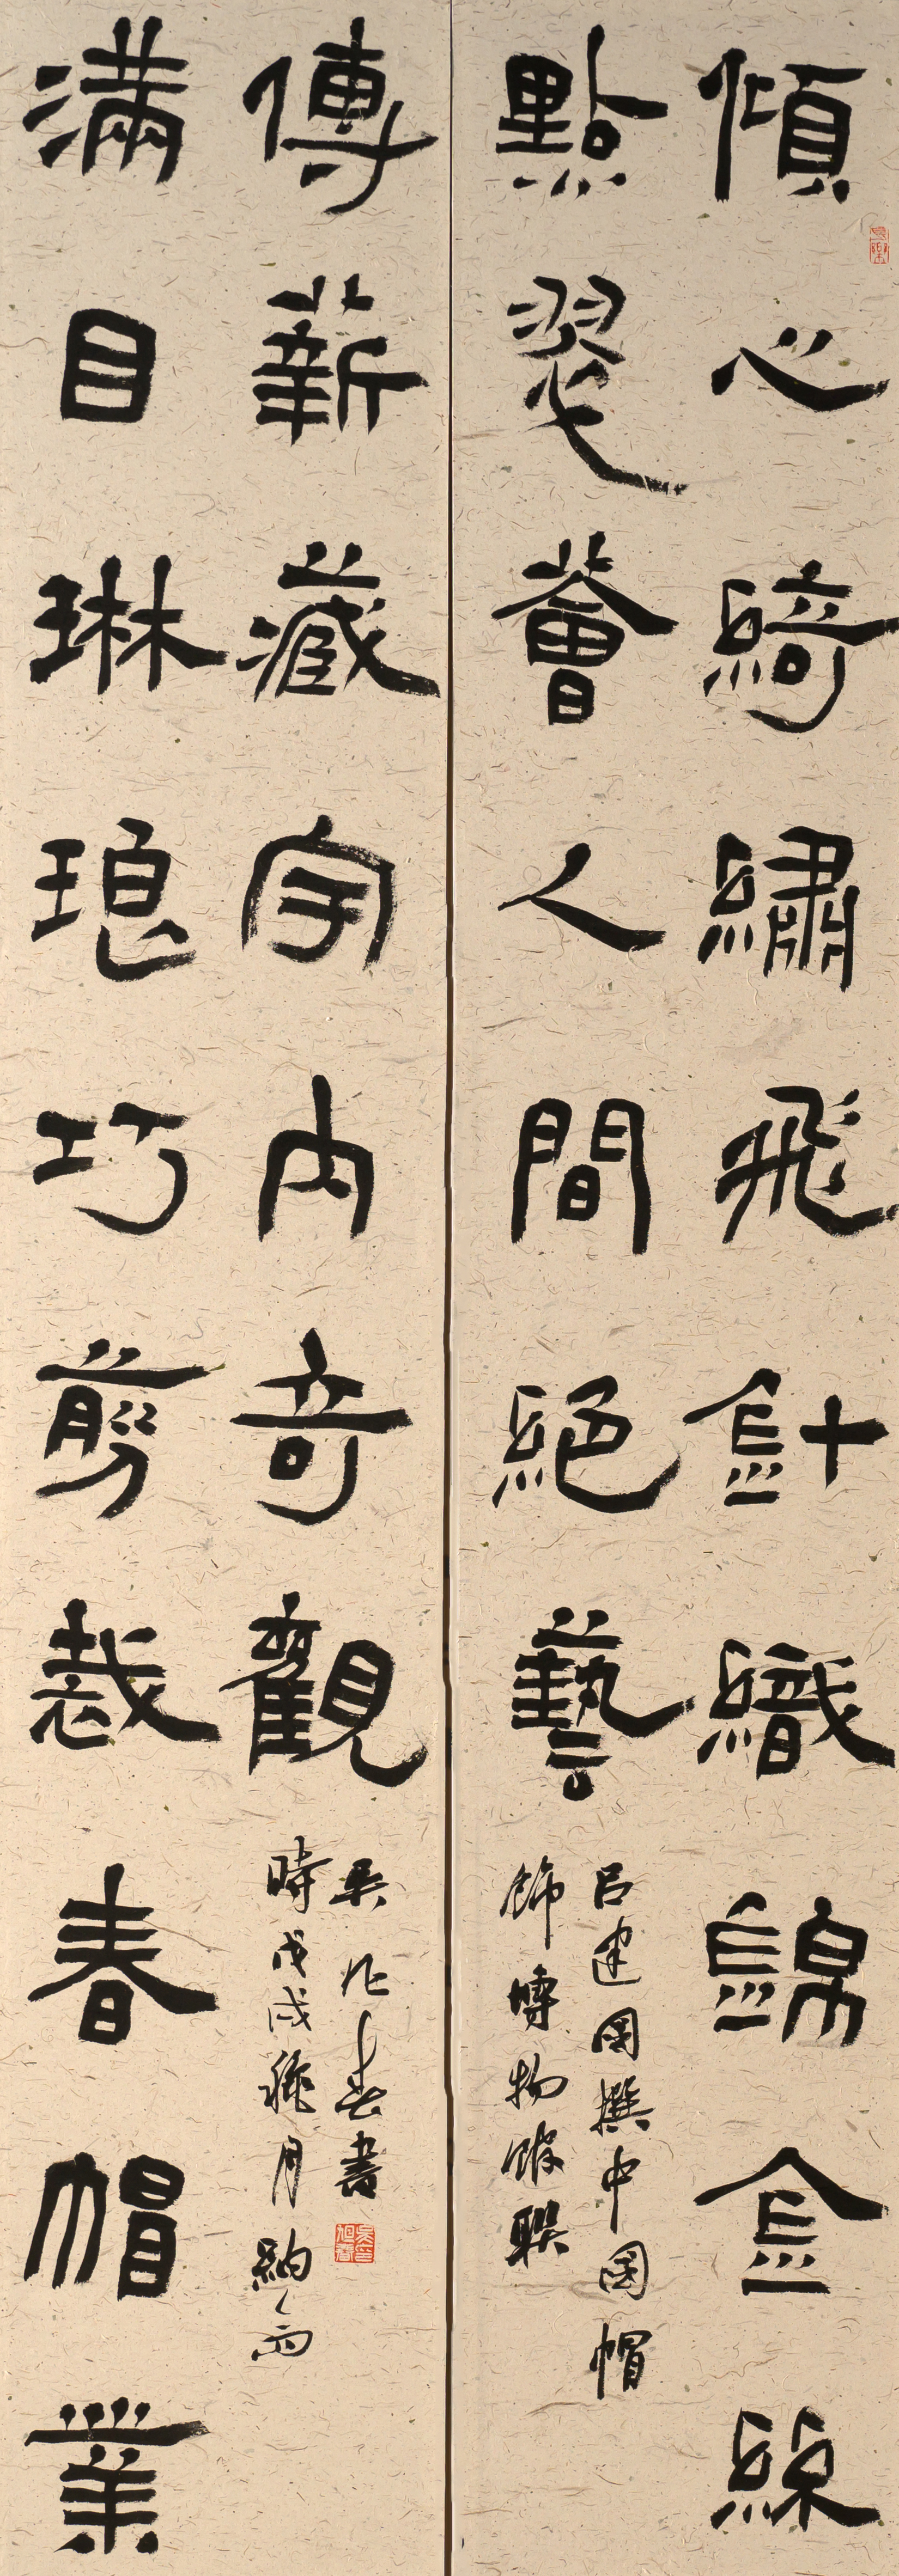 傾心綺繡飛針織錦金絲
點翠薈人間絕藝
呂建國撰中國帽
飾博物館聯
滿目琳琅巧剪裁春帽業
傳薪藏宇內奇觀
時戊戌穐月納
吳旭春書